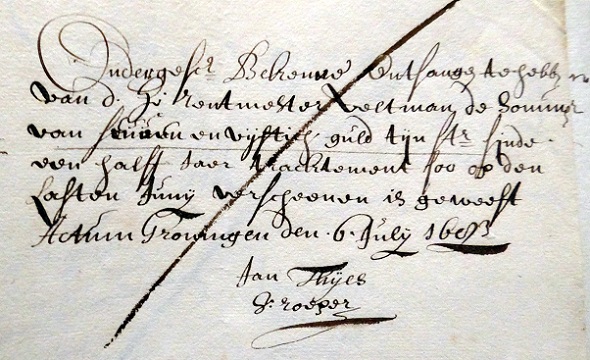 Ondergesr Bekenne Ontfangen te hebben
van d. Hr Rentmester Veltman de Somma
van seuven en vijftich guld tijn str sinde
een halff Jaer tracktement soo op den
lasten Junij verscheenen is geweest
Actum Groningen den 6 July
Jan Thijes